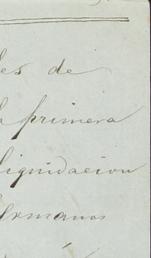 les de
la primera
liquidacion
Hermanos